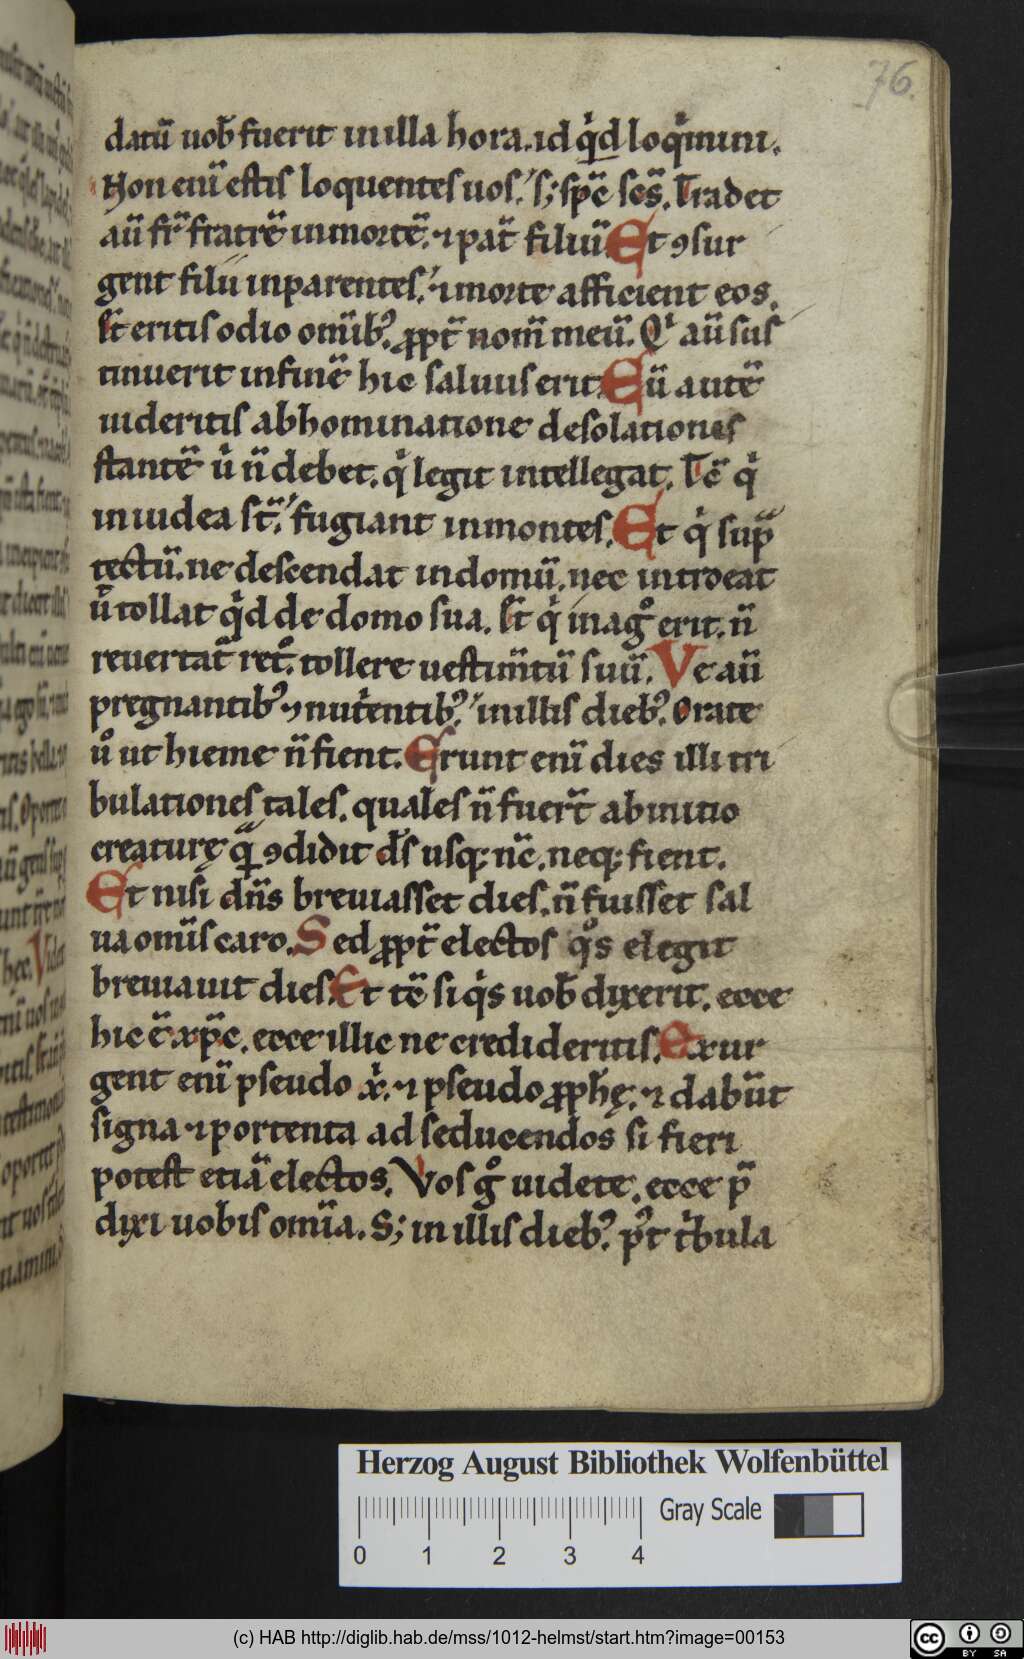 76.
datū uob̄ fuerit in illa hora. id q̇d loq̇mini.
Non enī estis loquentes uos. s; sp̄c sc̄s. Tradet
aū fr̄ fratrē in mortē. ⁊ pat̄ filiū. Et ꝯsur
gent filii in parentes. ⁊ morte afficient eos.
⁊ eritis odio omīb; ꝓpt̄ nom̄ meū. Qͥ aū sus
tinuerit in finē hic saluus erit. Cū autē
uideritis abhominatione desolationes
stantē u̇ n̄ debet. qͥ legit intellegat. Tc̄ qͥ
in iudea st̄. fugiant in montes. Et qͥ suꝑ
tectū. ne descendat in domū. nec introeat
ut̄ tollat qͥd de domo sua. ⁊ qͥ in agͦ erit. n̄
reuertat̄ ret°. tollere uestim̄tū suū. Ve aū
pregnantib; ⁊ nutͥentib; in illis dieb; Orate
uͦ ut hieme n̄ fient. Erunt enī dies illi tri
bulationes tales. quales n̄ fuert̄ ab initio
creaturę qᵃ̨ ꝯdidit d̄s usq; nc̄. neq; fient.
Et nisi dn̄s breuiasset dies. n̄ fuisset sal
ua omīs caro. Sed ꝓpt̄ electos qͦs elegit
breuiauit dies. Et tc̄ si qͥs uob̄ dixerit. ecce
hic ē xp̄c. ecce illic ne credideritis. Exur
gent enī pseudo xͥ. ⁊ pseudo ꝓph̄ę. ⁊ dabūt
signa ⁊ portenta ad seducendos si fieri
potest etiā electos. Vos gͦ uidete. ecce p̄
dixi uobis omīa. S; in illis dieb; p᷒t tͥbula
Herzog August Bibliothek Wolfenbüttel
0 1 2 3 4
Gray Scale
(c) HAB http://diglib.hab.de/mss/1012-helmst/start.htm?image=00153
cc BY SA